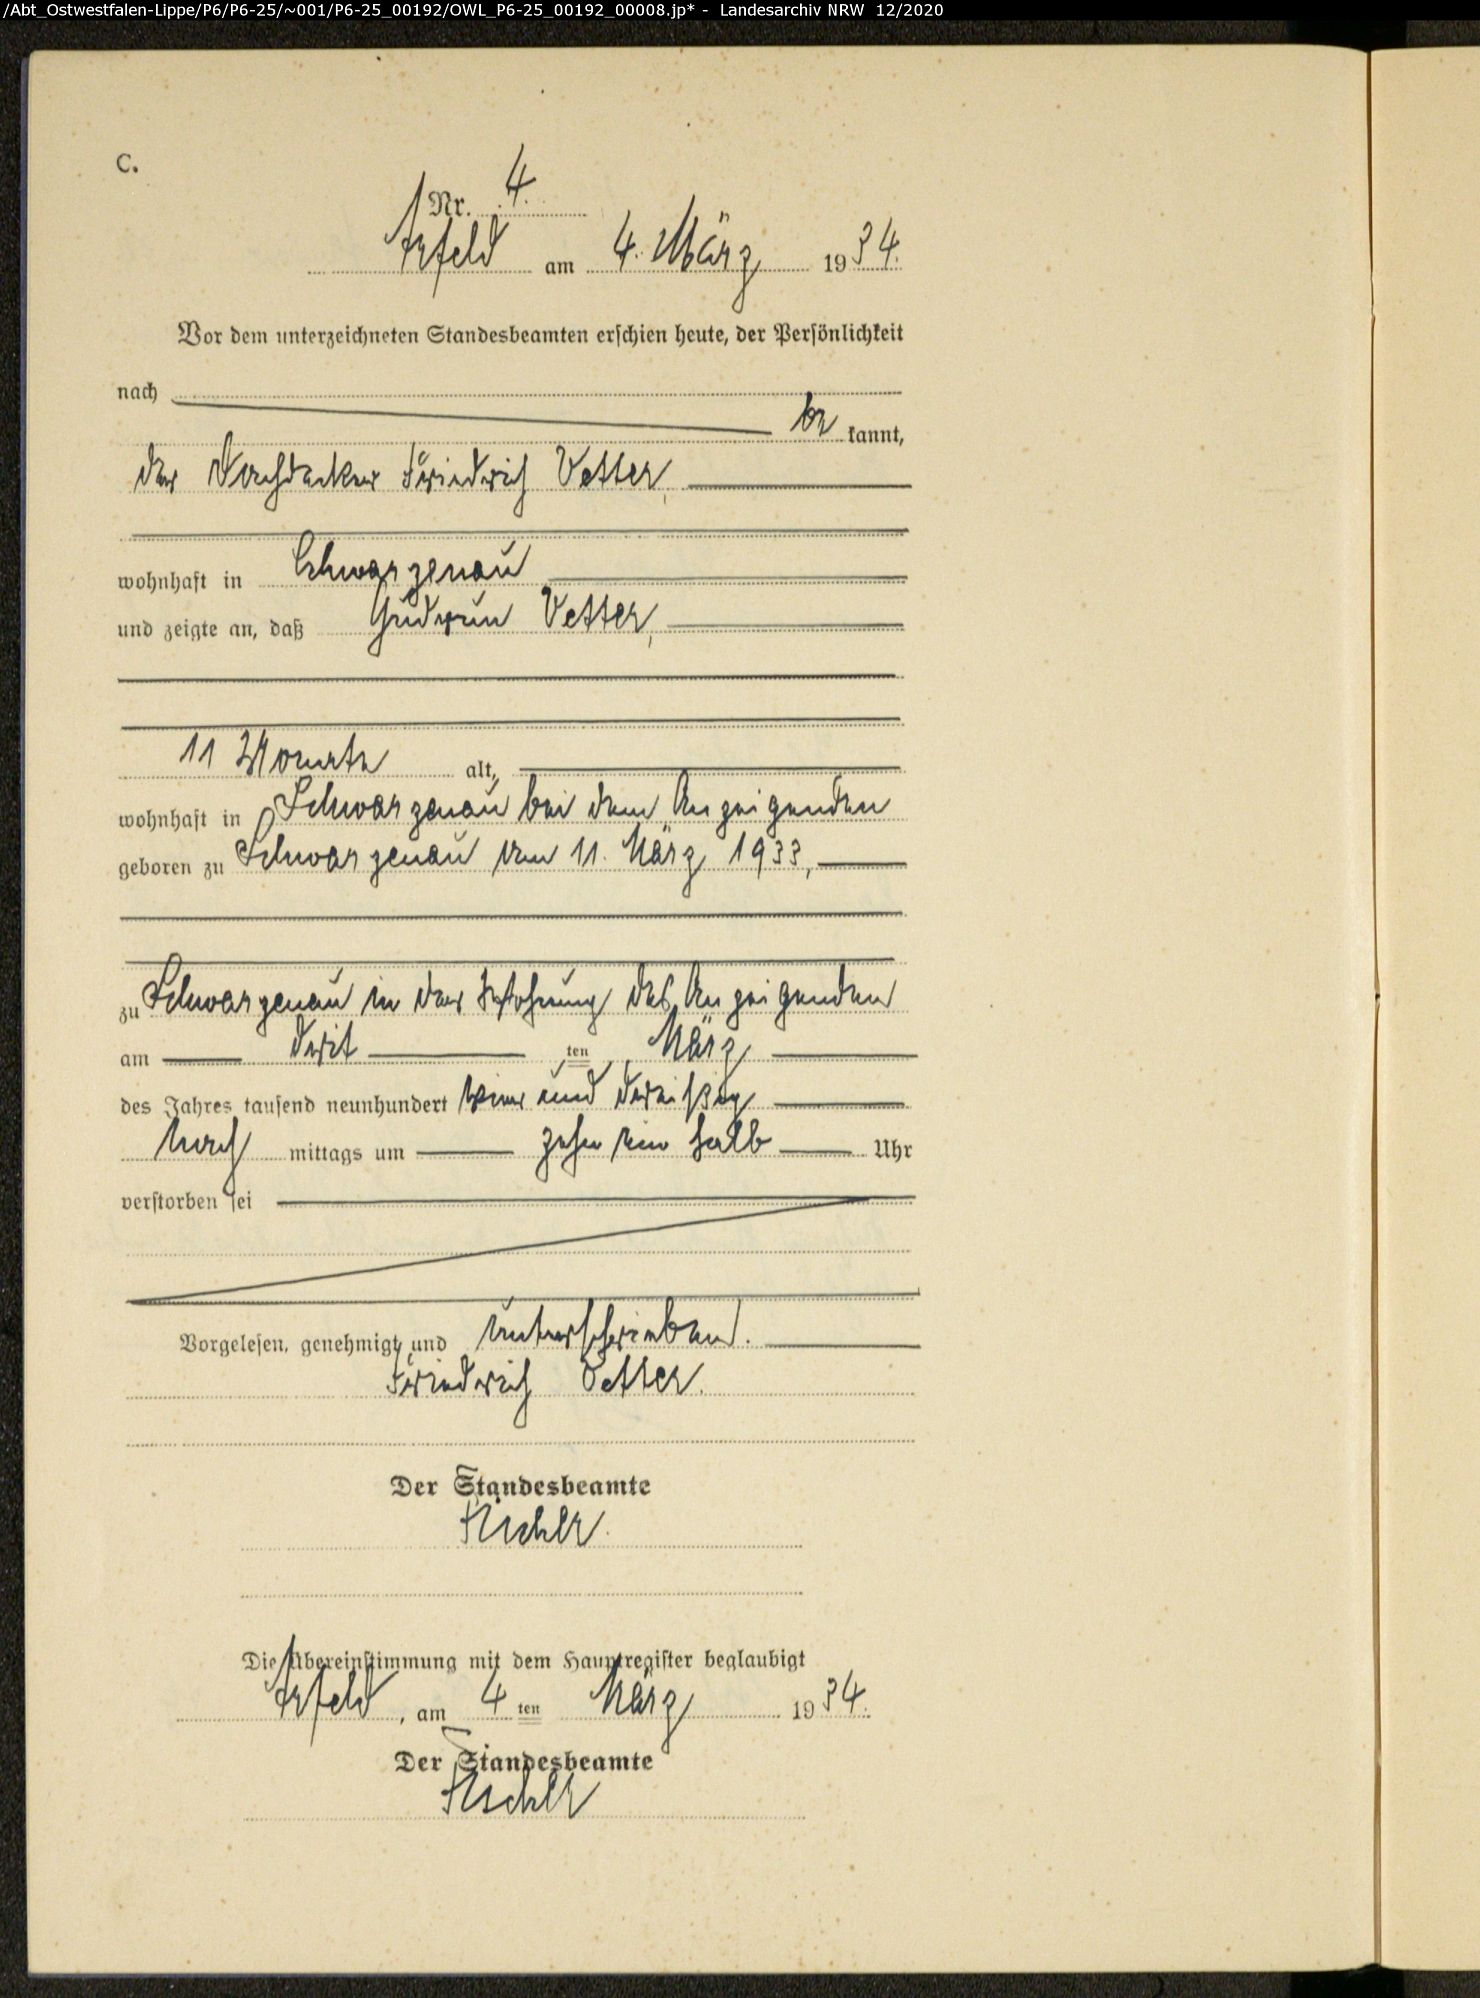 /Abt_Ostwestfalen-Lippe/P6/P6-25/~001/P6-25_00192/OWL_P6-25_00192_00008.jp* - Landesarchiv NRW 12/2020
C.
Nr. 4.
Arfeld am 4. März 1934.
Vor dem unterzeichneten Standesbeamten erschien heute, der Persönlichkeit
nach
be kannt,
der Dachdecker Friedrich Vetter,
wohnhaft in Schwarzenau
und zeigte an, daß Gudrun Vetter,
11 Monate alt,
wohnhaft in Schwarzenau bei dem Anzeigenden
geboren zu Schwarzenau am 11. März 1933,
zu Schwarzenau in der Wohnung des Anzeigenden
am dritten März
des Jahres tausend neunhundert vier und dreißig
nach mittags um zehn ein halb Uhr
verstorben sei
Vorgelesen, genehmigt und unterschrieben.
Friedrich Vetter.
Der Standesbeamte
Die Übereinstimmung mit dem Hauptregister beglaubigt
Arfeld, am 4ten März 1934.
Der Standesbeamte